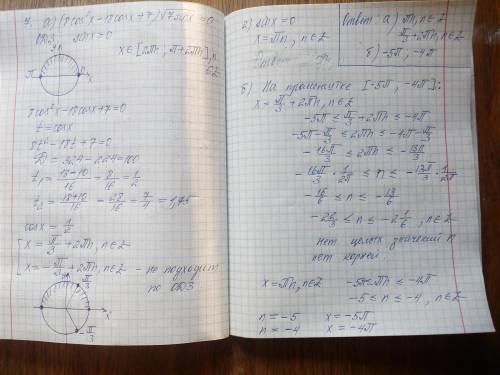 а) (8cos²x - 18cosx + 7)√7sinx = 0
ОДЗ sinx ≥ 0
x ∈ [2πn, π + 2πn], n ∈ Z
y
π
0
x
8cos²x - 18cosx + 7 = 0
t = cosx
8t² - 18t + 7 = 0
D = 324 - 224 = 100
t₁ = 18-10/16 = 8/16 = 1/2
t₂ = 18+10/16 = 28/16 = 7/4 = 1,75
cosx = 1/2
x = π/3 + 2πn, n ∈ Z
x = -π/3 + 2πn, n ∈ Z - не подходит
по ОДЗ
π/3
x
-π/3
2) sinx = 0
x = πn, n ∈ Z
Ответ: а) πn, n ∈ Z
π/3 + 2πn, n ∈ Z
б) -5π, -4π
б) На промежутке [-5π, -4π]:
x = π/3 + 2πn, n ∈ Z
-5π ≤ π/3 + 2πn ≤ -4π
-5π - π/3 ≤ 2πn ≤ -4π - π/3
-16π/3 ≤ 2πn ≤ -13π/3
-16π/3 · 1/2π ≤ n ≤ -13π/3 · 1/2π
-16/6 ≤ n ≤ -13/6
-2 2/3 ≤ n ≤ -2 1/6, n ∈ Z
нет целых значений n
нет корней.
x = πn, n ∈ Z -5π ≤ πn ≤ -4π
-5 ≤ n ≤ -4, n ∈ Z
n = -5 x = -5π
n = -4 x = -4π